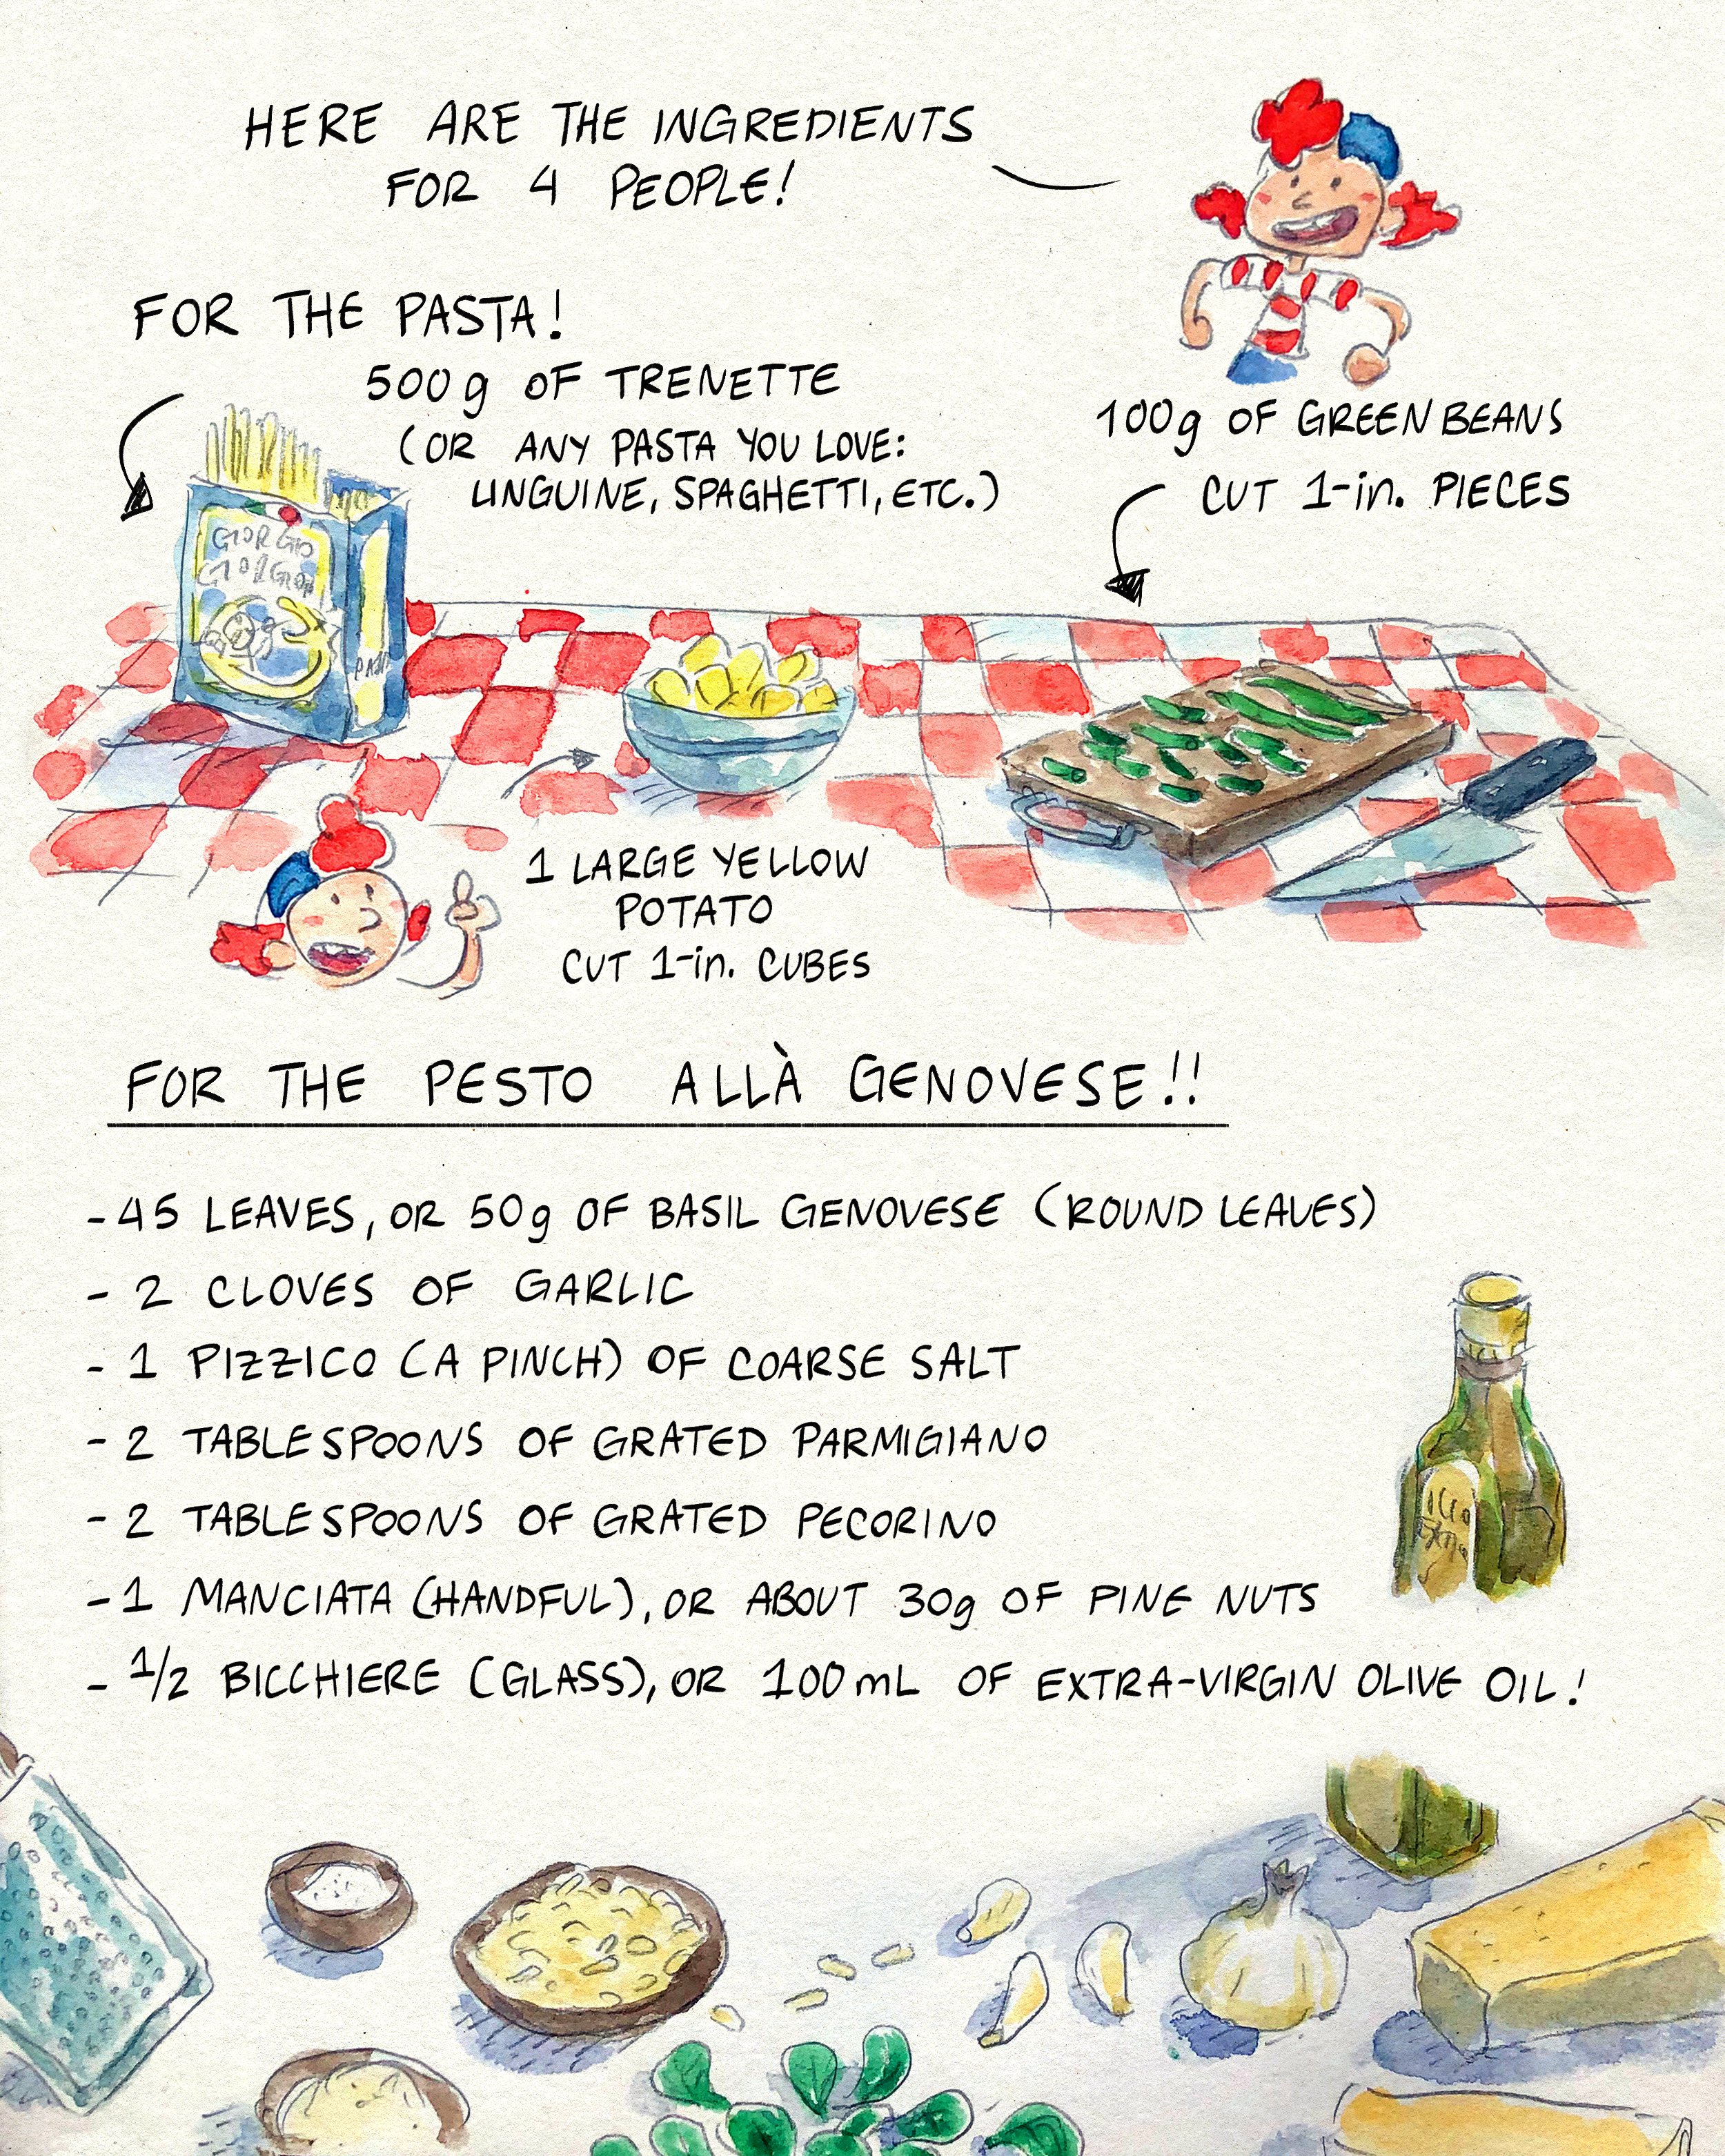 HERE ARE THE INGREDIENTS
FOR 4 PEOPLE!
FOR THE PASTA!
500g OF TRENETTE
(OR ANY PASTA YOU LOVE:
LINGUINE, SPAGHETTI, ETC.)
100g OF GREEN BEANS
CUT 1-in. PIECES
GIORGIO
GIORGIO
PASTA
1 LARGE YELLOW
POTATO
CUT 1-in. CUBES
FOR THE PESTO ALLÀ GENOVESE!!
- 45 LEAVES, OR 50g OF BASIL GENOVESE (ROUND LEAVES)
- 2 CLOVES OF GARLIC
- 1 PIZZICO (A PINCH) OF COARSE SALT
- 2 TABLESPOONS OF GRATED PARMIGIANO
- 2 TABLESPOONS OF GRATED PECORINO
- 1 MANCIATA (HANDFUL), OR ABOUT 30g OF PINE NUTS
- 1/2 BICCHIERE (GLASS), OR 100mL OF EXTRA-VIRGIN OLIVE OIL!